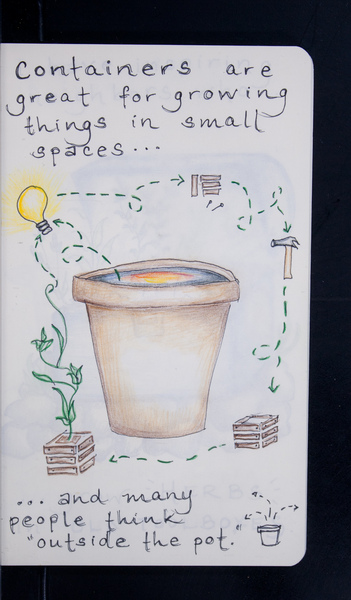 Containers are
great for growing
things in small
spaces...
... and many
people think
"outside the pot."